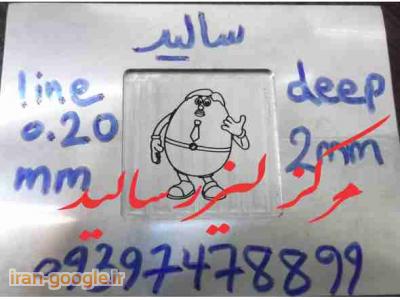 سالید
line deep
0.20 2mm
mm
مرکز لیزر سالید
09397478899
iran-google.ir